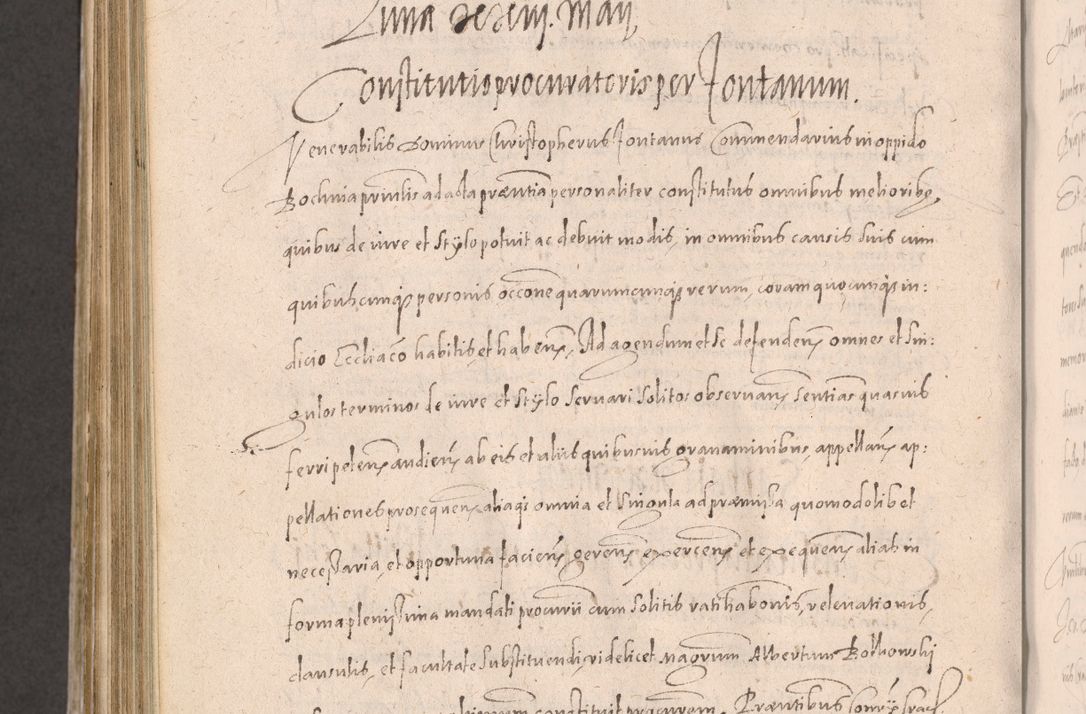 Luna Maij
Constitutio procuratoris per Jontanum.
Venerabilis Dominus Christopherus Jontanus Commendarius in oppido
Bochnia personaliter constitutus omnibus melioribus
quibus de iure et stylo potuit ac debuit modis, in omnibus causis suis cum
quibuscumque personis occone quarumcumque rerum, coram quocumque in:
dicio Eccliaco habitis et habens, Ad agendum et se defendens omnes et sin:
gulos terminos de iure et stylo servari solitos observans sentias quasvis
ferri petens audiens ab eis et aliis quibusvis gravaminibus, appellans ap:
pellationes prosequens aliaqs omnia et singula ad præmissa quomodolibet
necessaria, et opportuna faciens gerens exercens et exequens alias in
forma plenissima mandati procurii cum solitis ratihabonis, relevationis,
clausulis, et facultate substituendi, videlicet magrum Albertum Bolkowski
constituit procurem. Præntibus